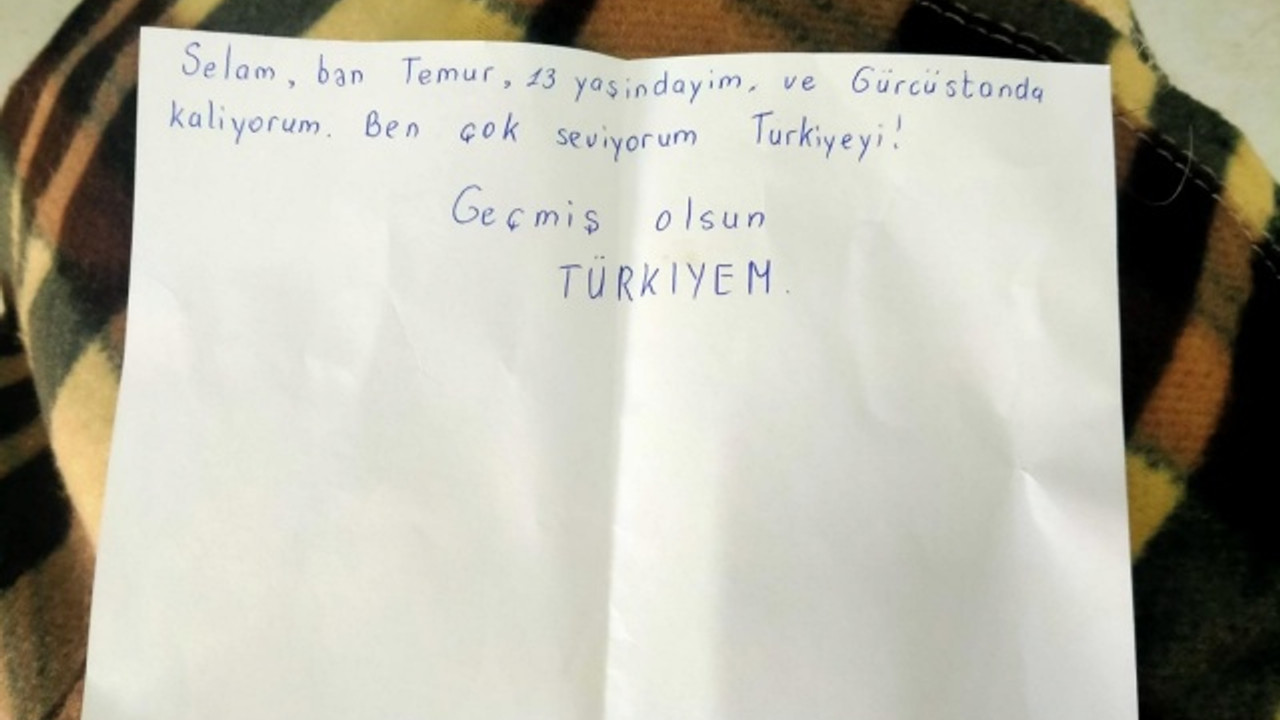 Selam, bən Temur, 13 yaşindayim, ve Gürcüstanda
kaliyorum. Ben çok seviyorum Turkiyeyi!
Geçmiş olsun
TÜRKIYEM.